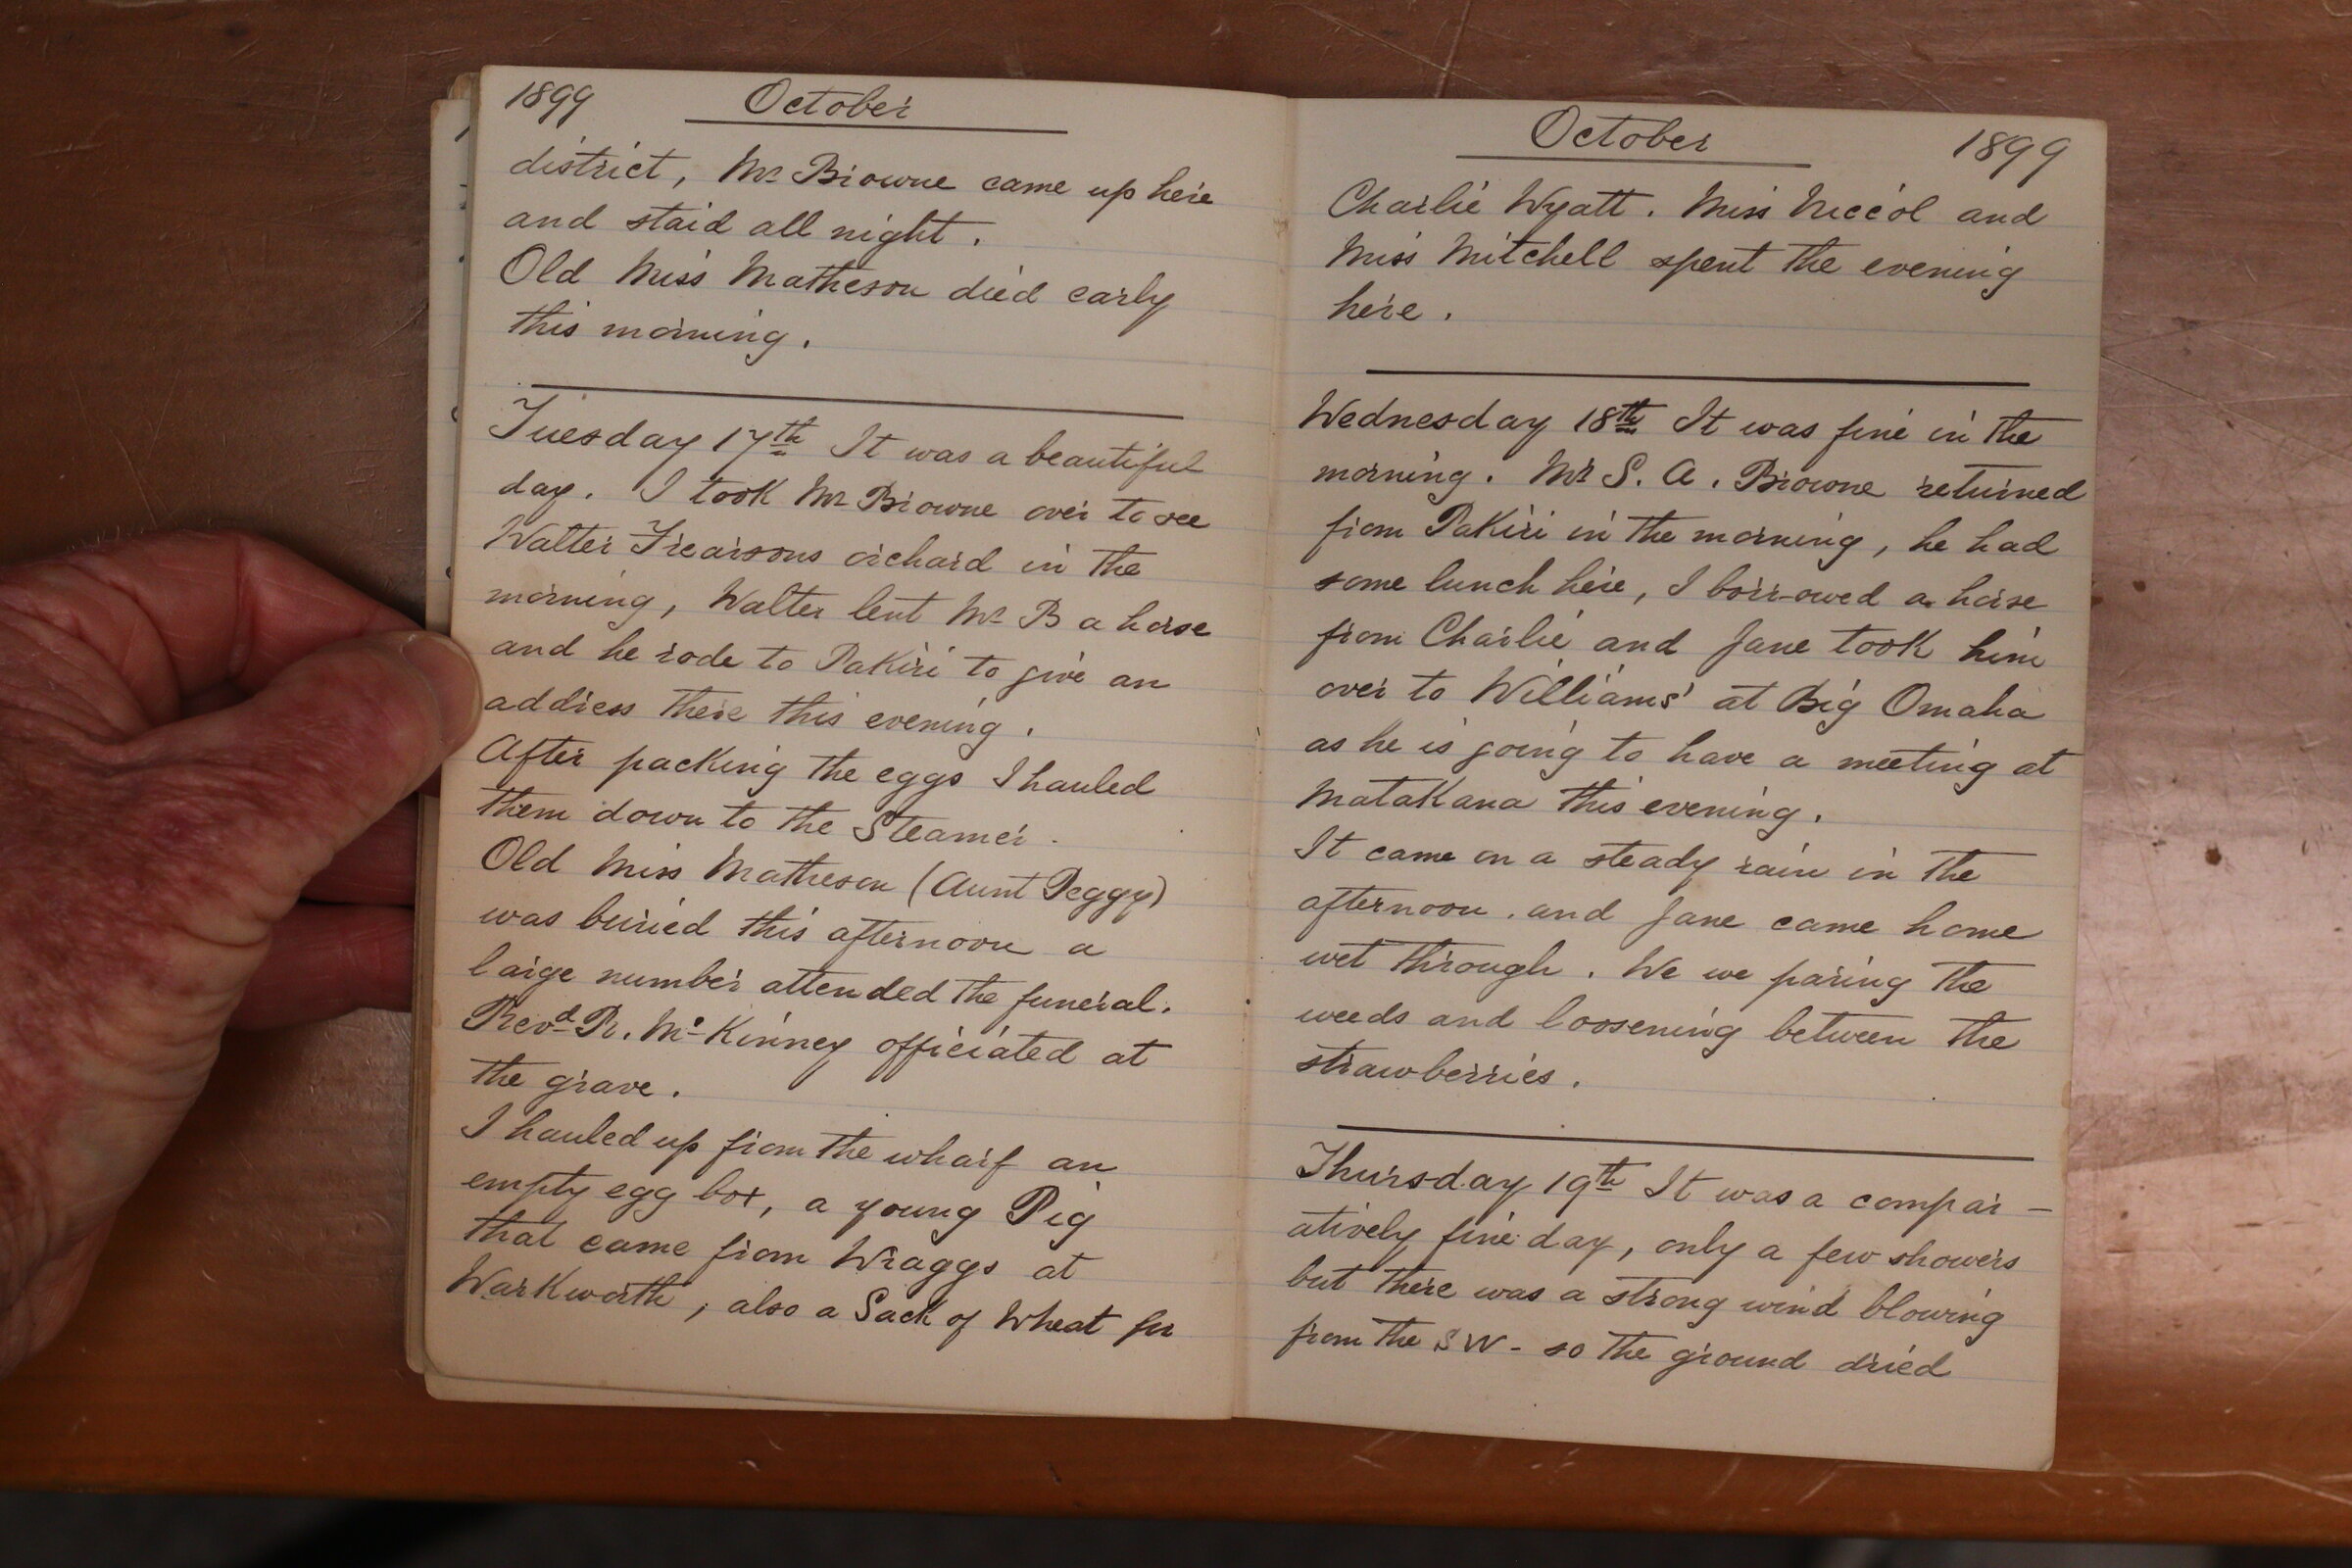 1899 October
district, Mr Browne came up here
and staid all night.
Old Miss Matheson died early
this morning.
Tuesday 17th It was a beautiful
day. I took Mr Browne over to see
Walter Frearsons orchard in the
morning, Walter lent Mr B a horse
and he rode to Pakiri to give an
address there this evening.
After packing the eggs I hauled
them down to the Steamer.
Old Miss Matheson (Aunt Peggy)
was buried this afternoon a
large number attended the funeral.
Revd R. McKinney officiated at
the grave.
I hauled up from the wharf an
empty egg box, a young Pig
that came from Wraggs at
Warkworth, also a Sack of Wheat for
October 1899
Charlie Wyatt. Miss Niccol and
Miss Mitchell spent the evening
here.
Wednesday 18th It was fine in the
morning. Mr S. A. Browne returned
from Pakiri in the morning, he had
some lunch here, I borrowed a horse
from Charlie and Jane took him
over to Williams' at Big Omaha
as he is going to have a meeting at
Matakana this evening.
It came on a steady rain in the
afternoon. and Jane came home
wet through. We we paring the
weeds and loosening between the
strawberries.
Thursday 19th It was a compar-
atively fine day, only a few showers
but there was a strong wind blowing
from the SW - so the ground dried